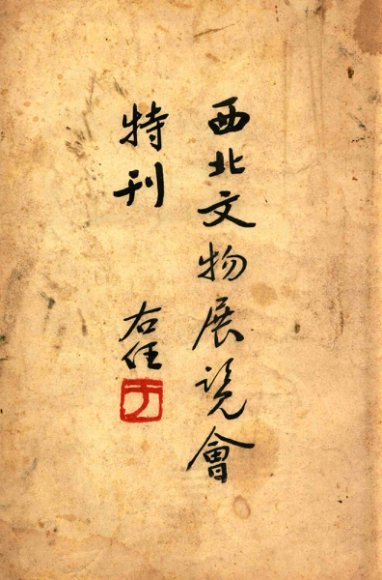 西北文物展览會
特刊
右任
于